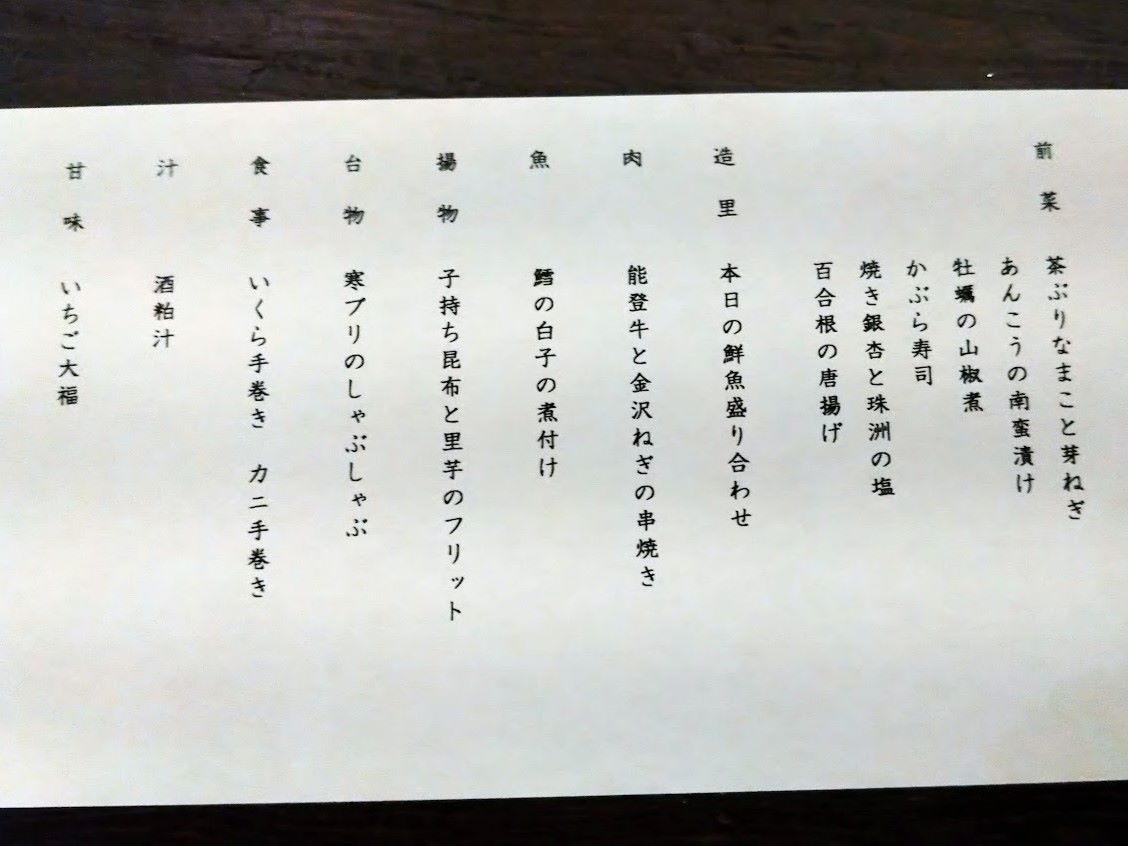 前菜 茶ぶりなまこと芽ねぎ
あんこうの南蛮漬け
牡蠣の山椒煮
かぶら寿司
焼き銀杏と珠洲の塩
百合根の唐揚げ
造里 本日の鮮魚盛り合わせ
肉 能登牛と金沢ねぎの串焼き
魚 鱈の白子の煮付け
揚物 子持ち昆布と里芋のフリット
台物 寒ブリのしゃぶしゃぶ
食事 いくら手巻き カニ手巻き
汁 酒粕汁
甘味 いちご大福